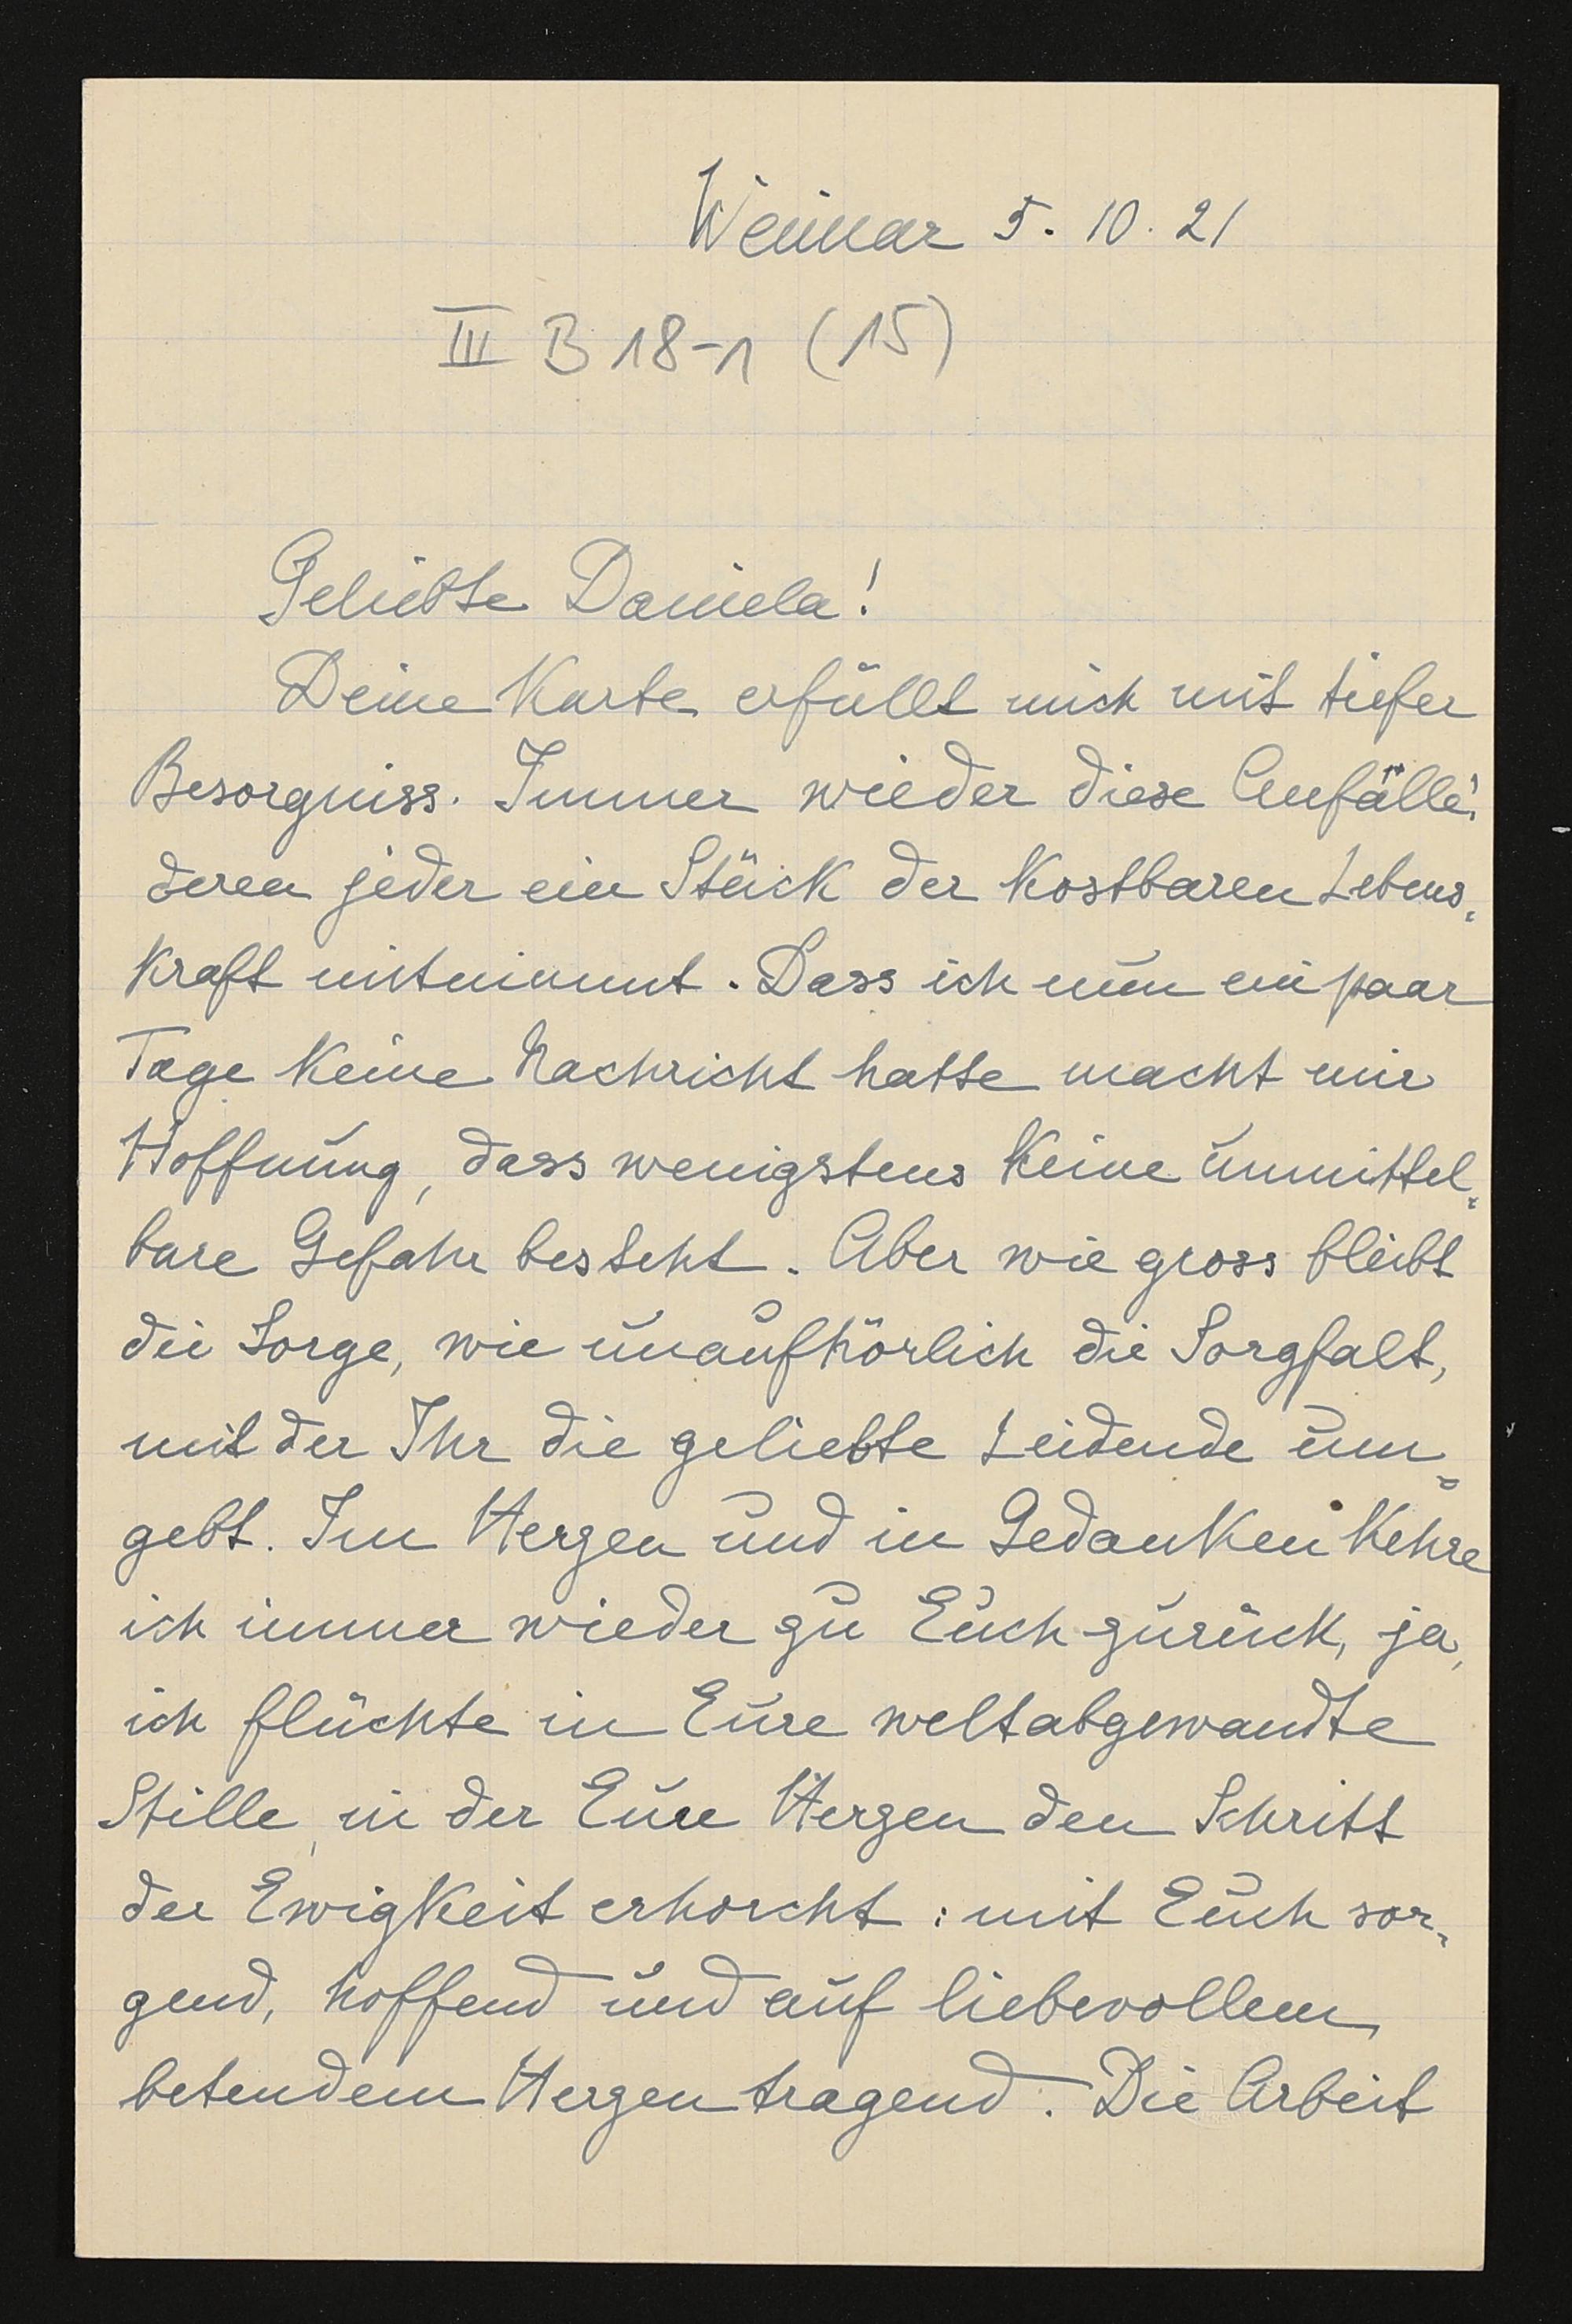 Weimar 5. 10. 21
III B 18-1 (15)
Geliebte Daniela!
Deine Karte erfüllt mich mit tiefer
Besorgniss. Immer wieder diese Anfälle!
deren jeder ein Stück der kostbaren Lebens-
kraft mitnimmt. Dass ich nun ein paar
Tage keine Nachricht hatte macht mir
Hoffnung, dass wenigstens keine unmittel-
bare Gefahr besteht. Aber wie gross bleibt
die Sorge, wie unaufhörlich die Sorgfalt,
mit der Ihr die geliebte Leidende um-
gebt. Im Herzen und in Gedanken kehre
ich immer wieder zu Euch zurück, ja,
ich flüchte in Eure weltabgewandte
Stille, in der Eure Herzen den Schritt
der Ewigkeit erhorcht: mit Euch sor-
gend, hoffend und auf liebevollem,
betendem Herzen tragend. Die Arbeit